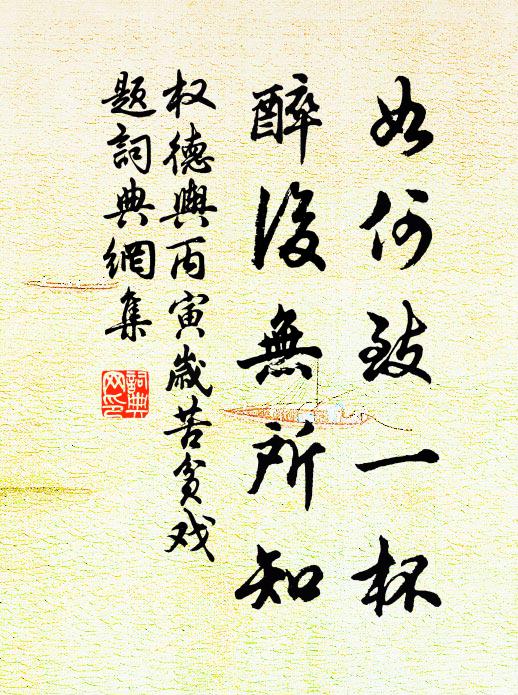 如何致一杯
醉後無所知
权德輿丙寅歲苦贫戏
题詞典網集
詞典网印